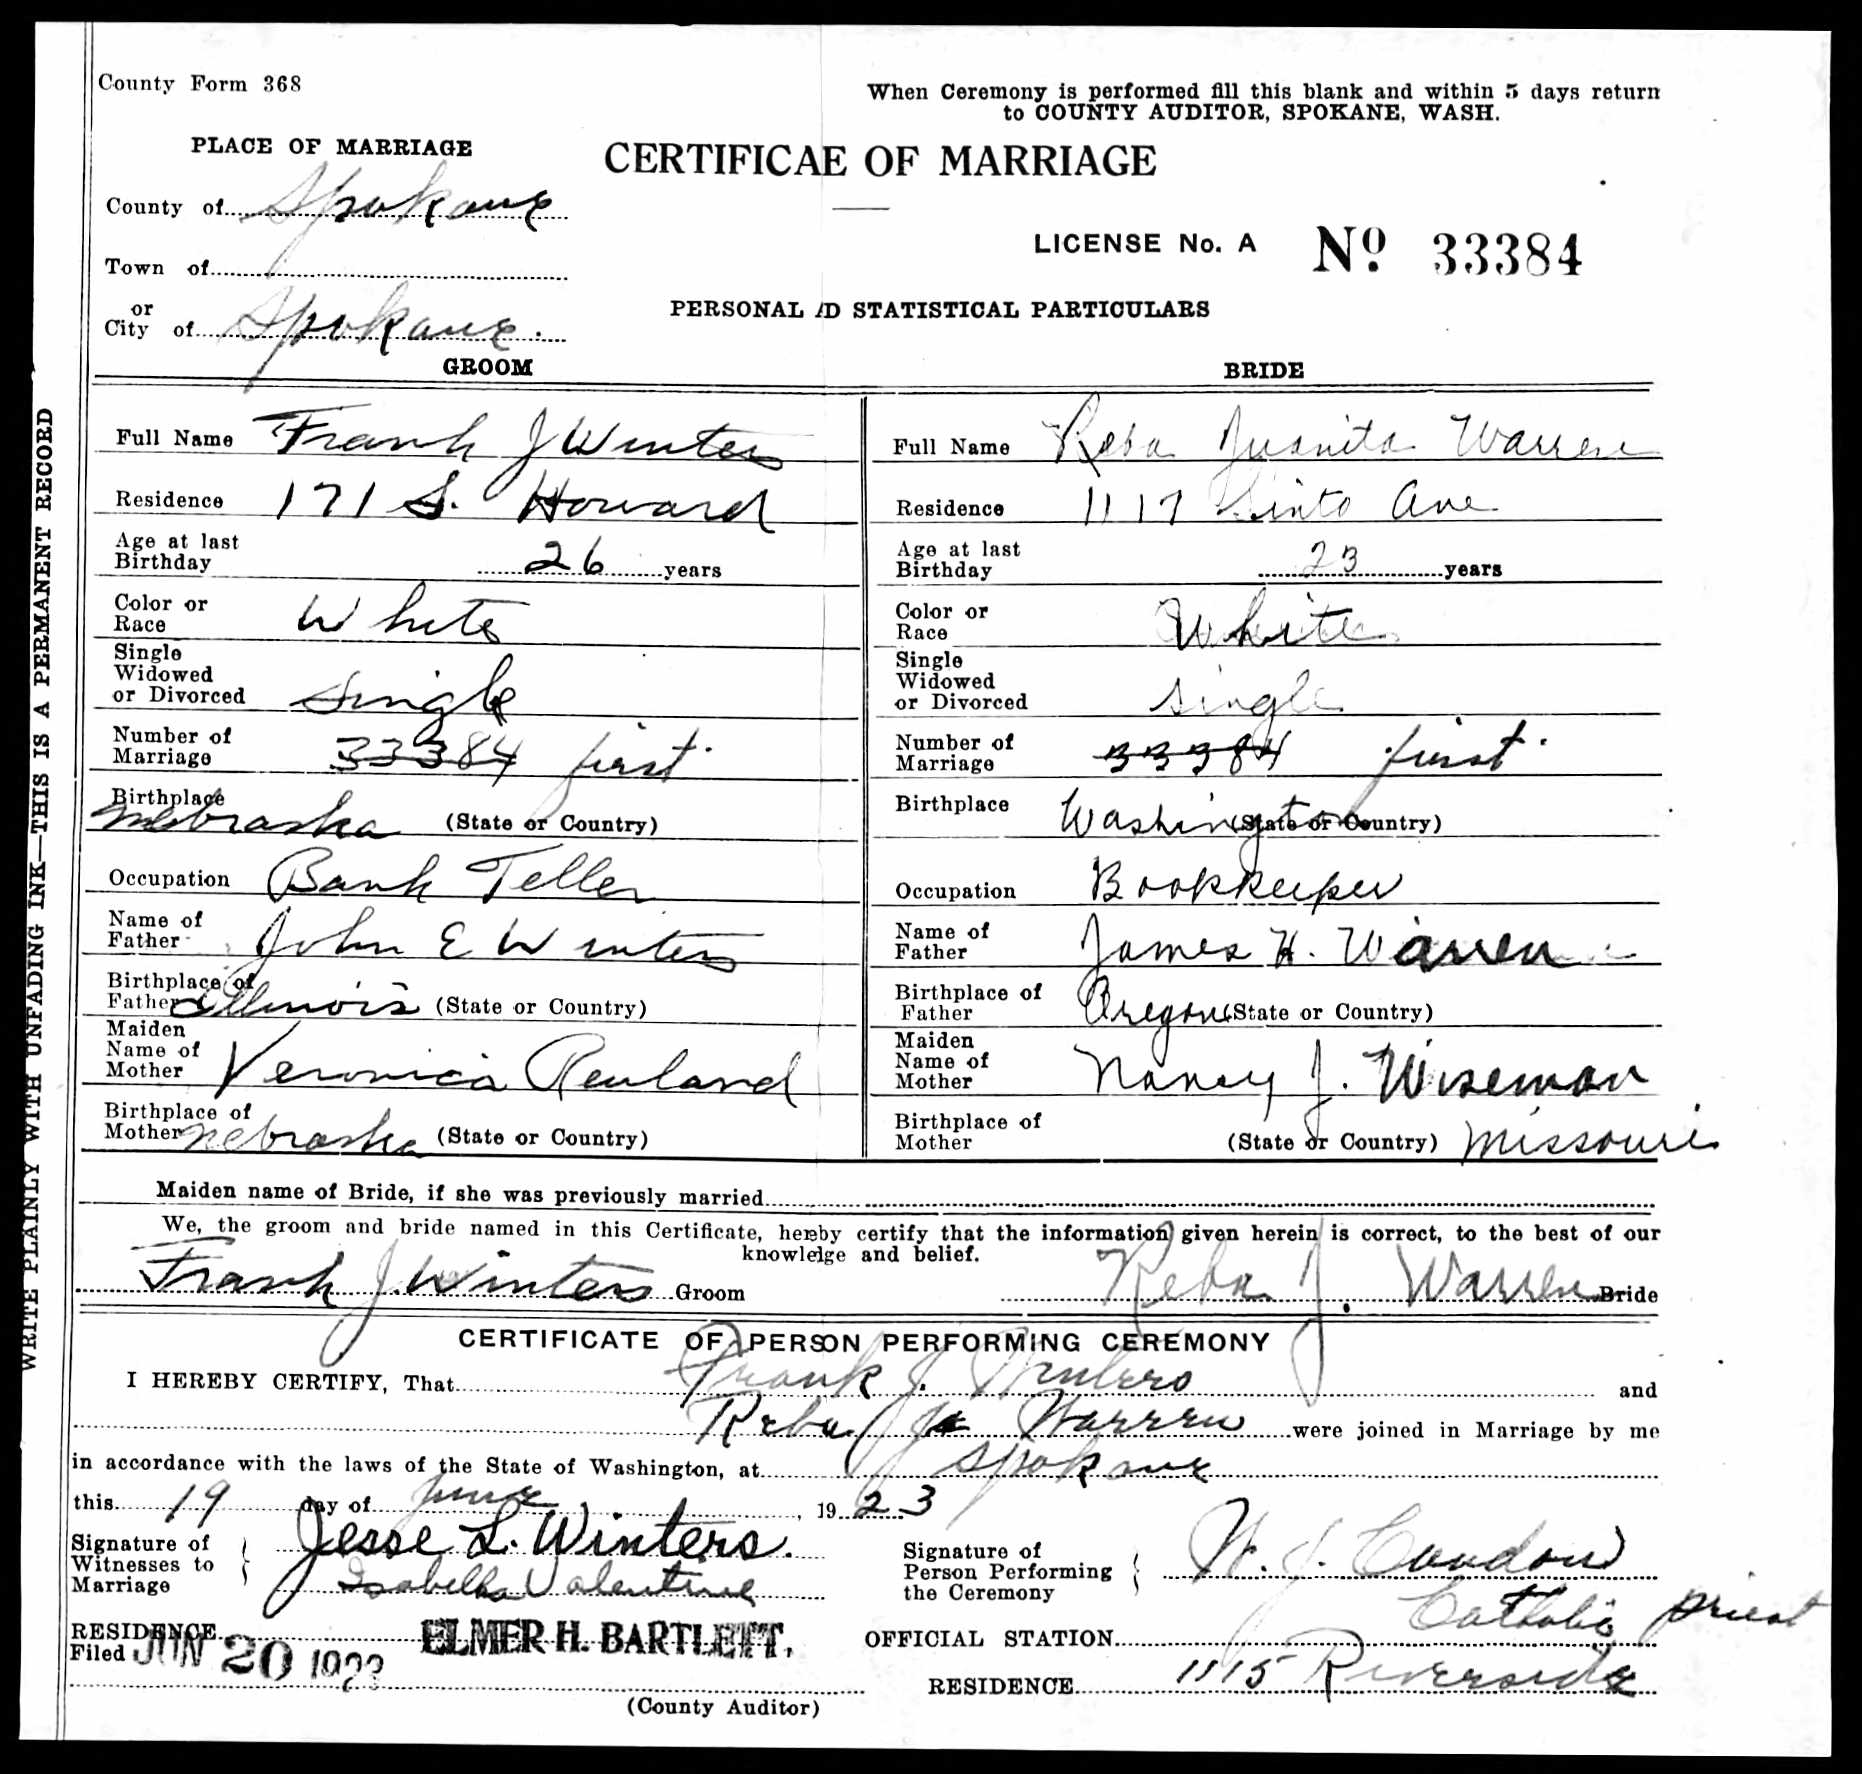 County Form 368
When Ceremony is performed fill this blank and within 5 days return
to COUNTY AUDITOR, SPOKANE, WASH.
PLACE OF MARRIAGE
CERTIFICAE OF MARRIAGE
County of Spokane
LICENSE No. A Nº 33384
Town of
or
City of Spokane.
PERSONAL /D STATISTICAL PARTICULARS
GROOM
BRIDE
Full Name Frank J Winters
Full Name Reba Juanita Warren
Residence 171 S. Howard
Residence 1117 Sinto Ave
Age at last
Birthday 26 years
Age at last
Birthday 23 years
Color or
Race White
Color or
Race White
Single
Widowed
or Divorced Single
Single
Widowed
or Divorced single
Number of
Marriage 33384 first
Number of
Marriage 33384 first
Birthplace
Nebraska (State or Country)
Birthplace Washington (State or Country)
Occupation Bank Teller
Occupation Bookkeeper
Name of
Father John E Winters
Name of
Father James H. Warren
Birthplace of
Father Illinois (State or Country)
Birthplace of
Father Oregon (State or Country)
Maiden
Name of
Mother Veronica Reuland
Maiden
Name of
Mother Nancy J. Wiseman
Birthplace of
Mother Nebraska (State or Country)
Birthplace of
Mother (State or Country) Missouri
Maiden name of Bride, if she was previously married
We, the groom and bride named in this Certificate, hereby certify that the information given herein is correct, to the best of our
knowledge and belief.
Frank J. Winters Groom
Reba J. Warren Bride
CERTIFICATE OF PERSON PERFORMING CEREMONY
I HEREBY CERTIFY, That Frank J. Winters and
Reba J Warren were joined in Marriage by me
in accordance with the laws of the State of Washington, at Spokane
this 19 day of June, 1923
Signature of
Witnesses to
Marriage
Jesse L. Winters.
Isabella Valentine
Signature of
Person Performing
the Ceremony
W. J. Condon
Catholic priest
RESIDENCE
Filed JUN 20 1923
ELMER H. BARTLETT.
(County Auditor)
OFFICIAL STATION
RESIDENCE 1115 Riverside
WRITE PLAINLY WITH UNFADING INK—THIS IS A PERMANENT RECORD